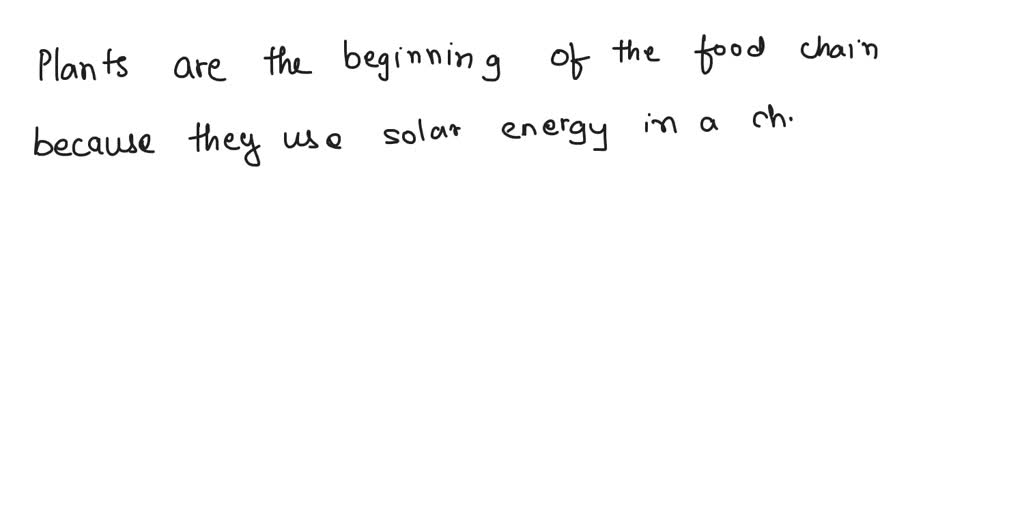 Plants are the beginning of the food chain
because they use solar energy in a ch.